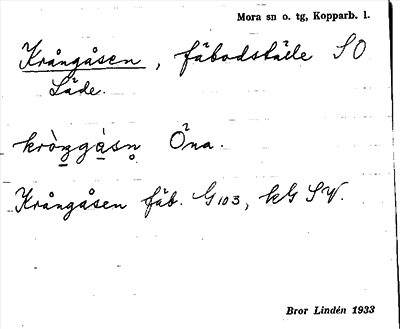 Mora sn o. tg, Kopparb. l.
Krångåsen, fäbodställe SO
Läde.
kròŋgàsn̥ Öna.
Krångåsen fäb. G103, kG SV.
Bror Lindén 1933